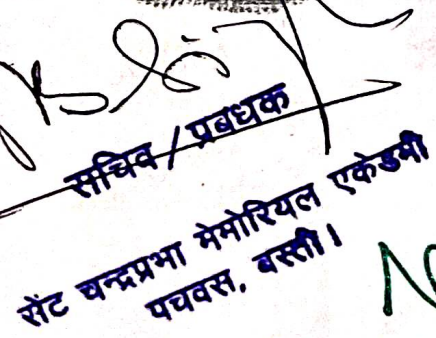 सचिव / प्रबधक
सेंट चन्द्रप्रभा मेमोरियल एकेडमी
पचवस, बस्ती।